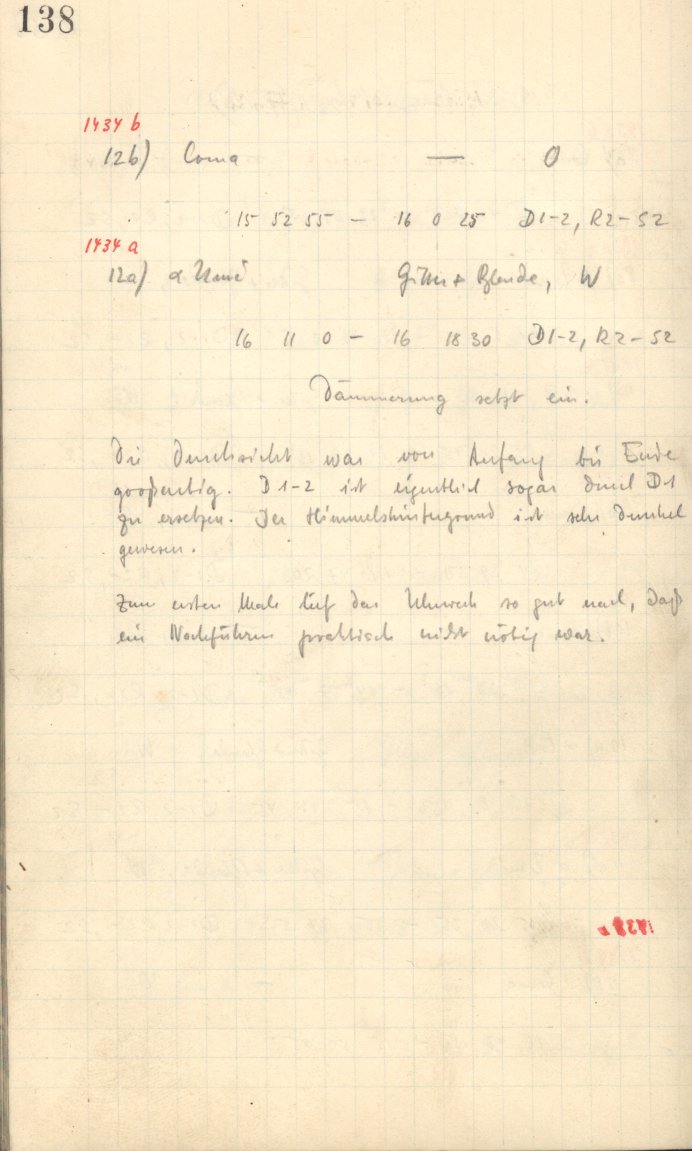 138
1434 b
12b) Coma — O
15 52 55 – 16 0 25 D1-2, R2-S2
1434 a
12a) α Umi Gitter + Blende, W
16 11 0 – 16 18 30 D1-2, R2-S2
Dämmerung setzt ein.
Die Durchsicht war von Anfang bis Ende
großartig. D 1-2 ist eigentlich sogar durch D1
zu ersetzen. Der Himmelshintergrund ist sehr dunkel
gewesen.
Zum ersten Male lief das Uhrwerk so gut nach, daß
ein Nachführen praktisch nicht nötig war.